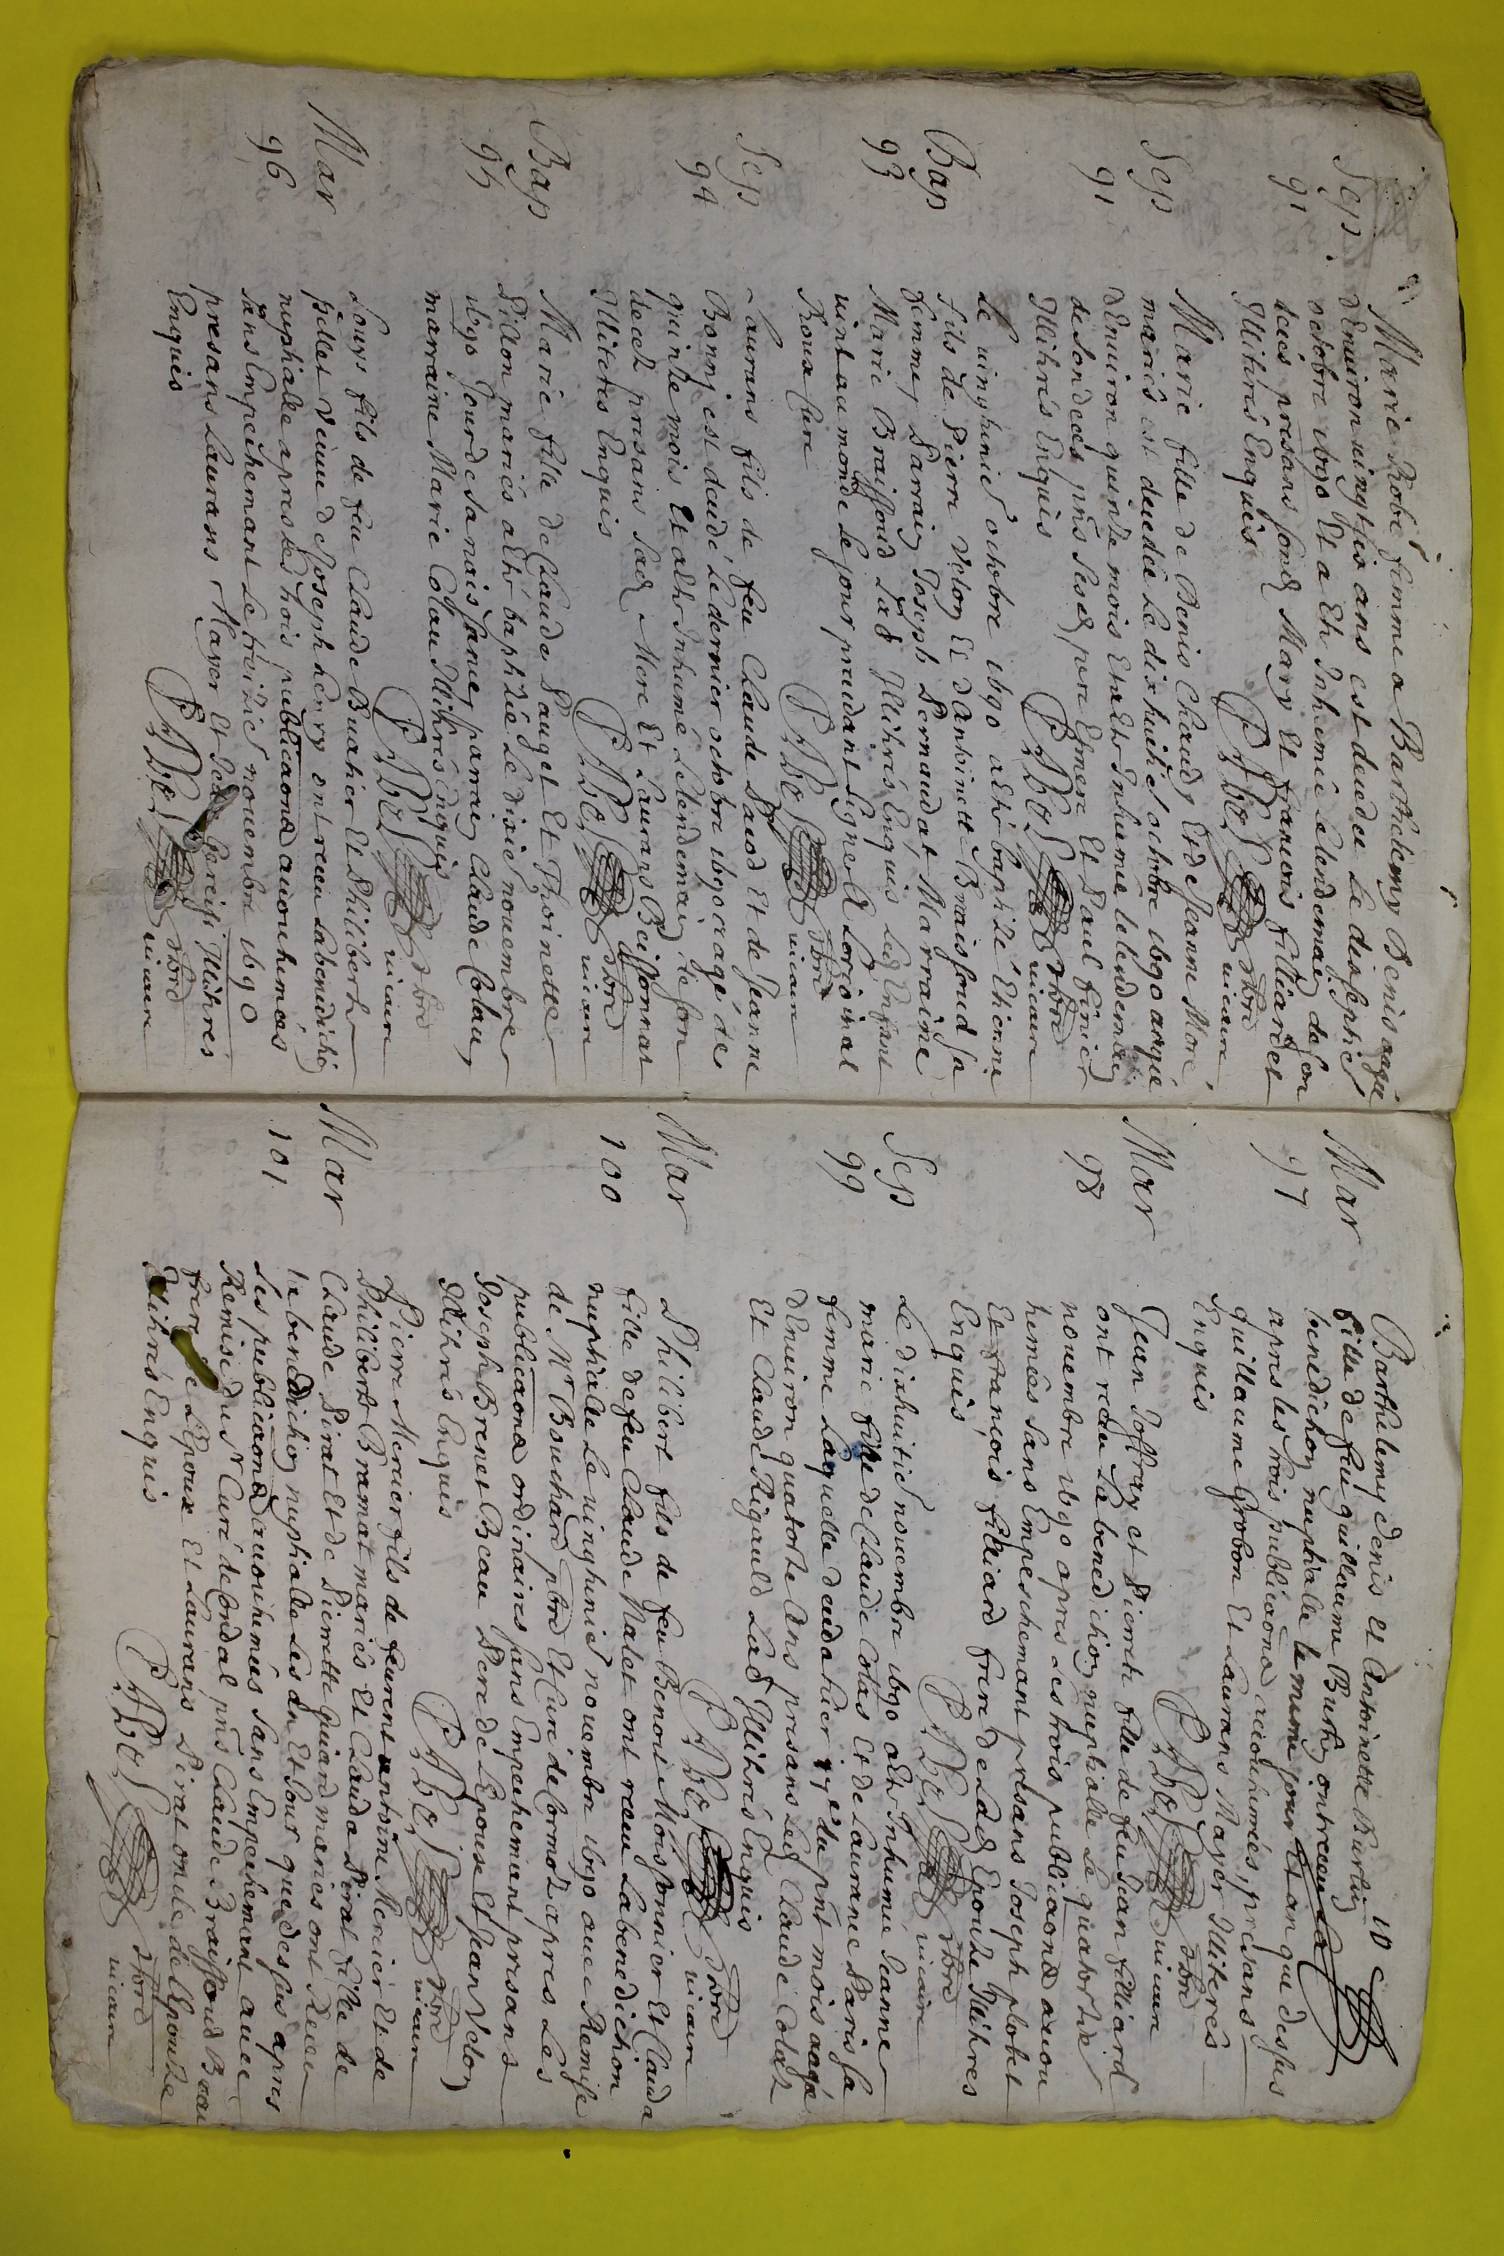 Sep
91
Marie Robé femme a Barthelemy Denis aagé
d'Enuiron uingt ans est decedee Le
octobre 1690 Et a Ete Inhumée Lelendemain de son
deces presans son Mary Et francois filliardet
Illiterés Enquis
P Aloé pbre
uicaire
Sep
91
Marie fille de Denis Chaudy Et de Jeanne Moré
mariés est decedée Le dixhuitie octobre 1690 aagée
d'Enuiron quinze mois Et a Ete Inhumée lelendemain
de son decès pns Sesd. pere Et mere Et Paul
Illiterés Enquis
P Aloé pbre
uicaire
Bap
93
Le uingtunie octobre 1690 a Eté baptizé Etienne
fils de Pierre Velon Et d'Antoinett Braissoud sa
femme, Parrain Joseph Pernaudat, Marraine
Marie Braissoud Lad Illiterés Enquis Led Enfant
uint au monde Le jour precedant Signé
Roux Cure
P Aloé pbre
uicaire
Sep
94
Laurans fils de feu Claude Paiod Et de Jeanne
Bonnj est decedé Le dernier octobre 1690 aagé de
quinze mois Et a Eté Inhumé Lelendemain de son
decès presans Sad Mere Et Laurans Buissonnat
Illiterés Enquis
P Aloé pbre
uicaire
Bap
95
Marie fille de Claude Pauget Et Thoinette
Pillon mariés a Eté baptizée Le dixie nouembre
1690 Jour de sa naissance, parrain Claude Colau,
marraine Marie Colau Illiterés Enquis
P Aloé pbre
uicaire
Mar
96
Louys fils de feu Claude Buathier Et Philiberte
pillet veuue de Joseph henry ont receu La benediction
nuptialle apres Les trois publicaons auouchemées
sans Empeschemant Le troizie nouembre 1690
presans Laurans Mayer Et Illiteres
Enquis
P Aloé pbre
uicaire
10
Mar
97
Barthelemy Denis et Antoinette Burtin
fille de feu guillaume Burtin ont receu La
benediction nuptialle le mesme jour Et an que dessus
apres les trois publicaons auouchemés, presans
guillaume Grobon Et Laurans Mayer Illiterés
Enquis
P Aloé pbre
uicaire
Mar
98
Jean Joffray et Pierrete fille de feu Jean filliard
ont receu La benediction nuptialle Le quatorzie
nouembre 1690 apres Les trois publicaons auou
hemées sans Empeschemant presans Joseph plotet
Et francois filliard frere de Lad Epouze Illiteres
Enquis
P Aloé pbre
uicaire
Sep
99
Le dixhuitie nouembre 1690 a Eté Inhumée Jeanne
marie fille de Claude Colas Et de Laurance Paris sa
femme Laquelle deceda hier 17e du pnt mois aagée
d'Enuiron quatorze Ans presans Led Claude Colas
Et Claude Rigauld Lad Illiterés Enquis
P Aloé pbre
uicaire
Mar
100
Philibert fils de feu Benoit Moissonnier Et Clauda
fille de feu Claude Nalet ont receu La benediction
nuptialle Le uingtunie nouembre 1690 auec Remise
de Mr Bouchard pbre Et Curé de Cormoz apres Les
publicaons ordinaires sans Empechement presans
Joseph Brenet Beau Pere de L'Epoux Et Jean Velon
Illiterés Enquis
P Aloé pbre
uicaire
Mar
101
Pierre Mercier fils de feurent antoine Mercier Et de
Philiberte Bramat mariés Et Clauda Pirat fille de
Claude Pirat Et de Pierrette guiard mariés ont Receu
la benediction nuptialle Les an Et Jour que dessus apres
Les publicaons auouchemées sans Empechemant auec
Remise du Sr Curé de Condal pns Claude Braissoud Beau
frere de L'Epoux Et Laurans Pirat oncle de L'Epouze
Illiterés Enquis
P Aloé pbre
uicaire